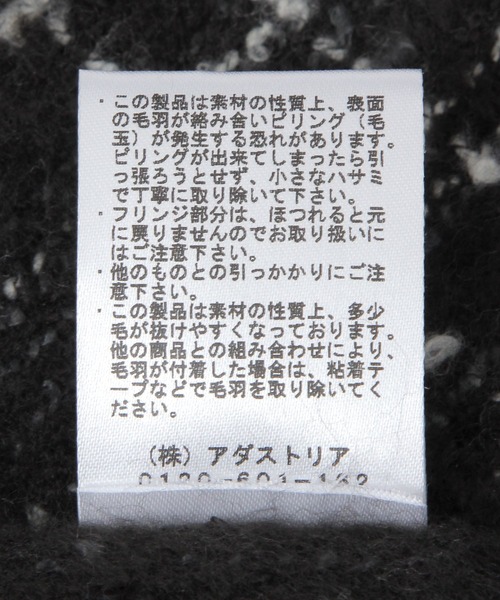 ・この製品は素材の性質上、表面
の毛羽が絡み合いピリング（毛
玉）が発生する恐れがあります。
ピリングが出来てしまったら引
っ張ろうとせず、小さなハサミ
で丁寧に取り除いて下さい。
・フリンジ部分は、ほつれると元
に戻りませんのでお取り扱いに
はご注意下さい。
・他のものとの引っかかりにご注
意下さい。
・この製品は素材の性質上、多少
毛が抜けやすくなっております。
他の商品との組み合わせにより、
毛羽が付着した場合は、粘着テ
ープなどで毛羽を取り除いてく
ださい。
（株）アダストリア
0120-601-162